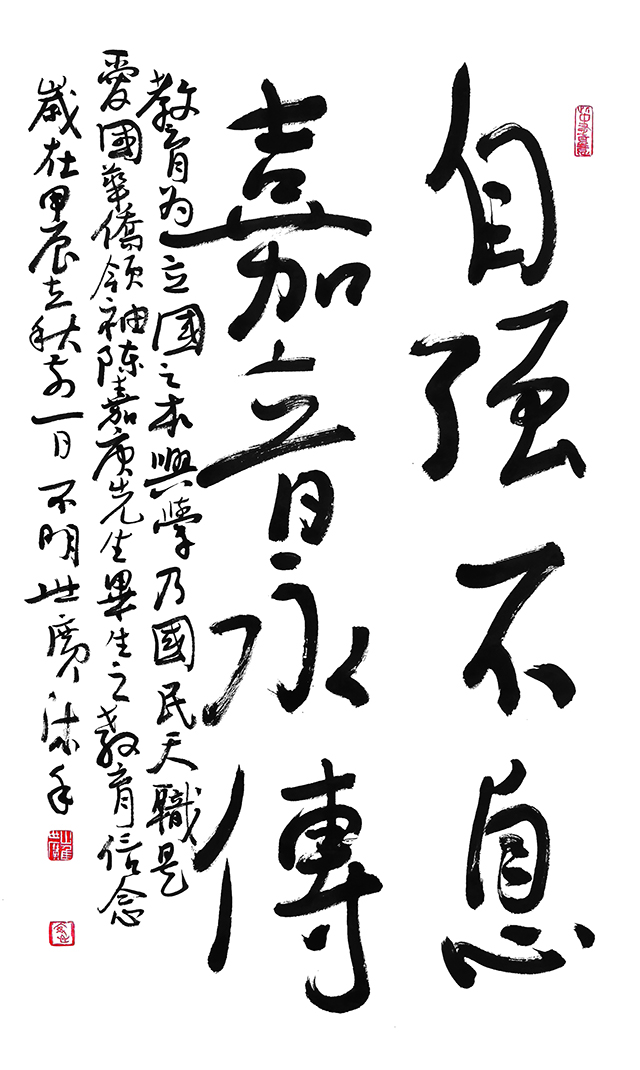 自强不息
嘉音永傳
教育为立國之本興學乃國民天職是
愛國華僑領袖陈嘉庚先生畢生之教育信念
歲在甲辰立秋前一日不明世廣沐手